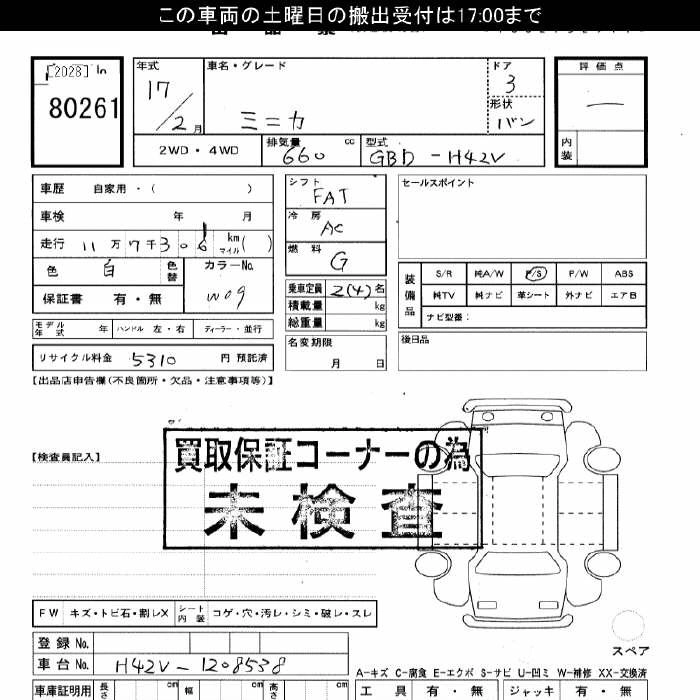 この車両の土曜日の搬出受付は17:00まで
[2028] In
80261
年式 17/2月
車名・グレード ミニカ
ドア 3
形状 バン
評価点 一
内装
2WD・4WD
排気量 660 cc
型式 GBD-H42V
車歴 自家用・( )
車検 年 月
走行 11万7千306 km マイル ( )
色 白 色替
カラーNo. W09
保証書 有・無
モデル年式 年 ハンドル 左・右 ディーラー・並行
リサイクル料金 5310 円 預託済
シフト FAT
冷房 AC
燃料 G
乗車定員 2(4) 名
積載量 kg
総重量 kg
名変期限 月 日
セールスポイント
装備品
S/R 純A/W P/S P/W ABS
純TV 純ナビ 革シート 外ナビ エアB
ナビ型番:
後日品
【出品店申告欄(不良箇所・欠品・注意事項等)】
【検査員記入】
買取保証コーナーの為
未検査
FW キズ・トビ石・割レX シート内装 コゲ・穴・汚レ・シミ・破レ・スレ
登録No.
車台No. H42V-1208538
スペア
A-キズ C-腐食 E-エクボ S-サビ U-凹ミ W-補修 XX-交換済
車庫証明用 長さ cm 幅 cm 高さ cm
工具 有・無 ジャッキ 有・無